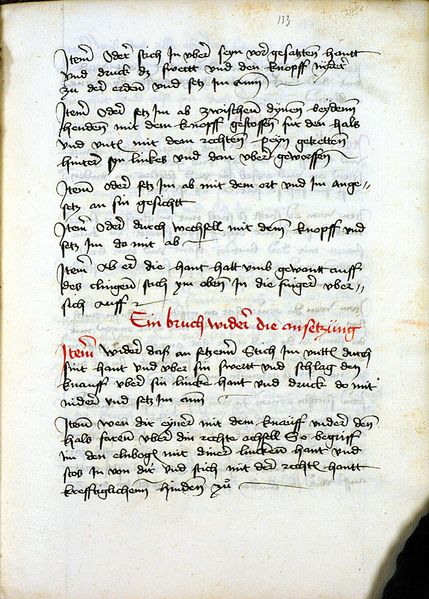 133
Item Oder stich In vber seyn vor gesatzten hantt
vnd druck dz swertt vnd den knopff nyder
zu der erden vnd setz Im ann
Item Oder setz Im ab zwischenn dynen beydenn
henden mit dem knopff gestossen fur den hals
vnd vntt mit dem rechten beyn getretten
hinter syn linkes vnd dan vber geworffen
Item oder setz Im ab mit dem ort vnd Im ange=
setz an sin gesichtt
Item Oder durch wechsell mit dem knopff vnd
setz Im do mit ab
Item Ab er die hant hatt vmb gewantt auff
des clingen stich ym oben In die finger vber=
sich auff
Ein bruch wider die ansetzung
Item wider daß an setzenn Stich Im vntt durch
sint hant vnd vber sin swertt vnd schlag den
knauff vber sin lincke hant vnd druck do mit
nider vnd setz Im ann
Item wen dir eyner mit dem knauff vnder den
hals faren vber din rechte achsell So begriff
im den elnbog mit diner lincken hant vnd
stos In von dir vnd stich mit der recht hantt
krefftiglichenn hinden zu